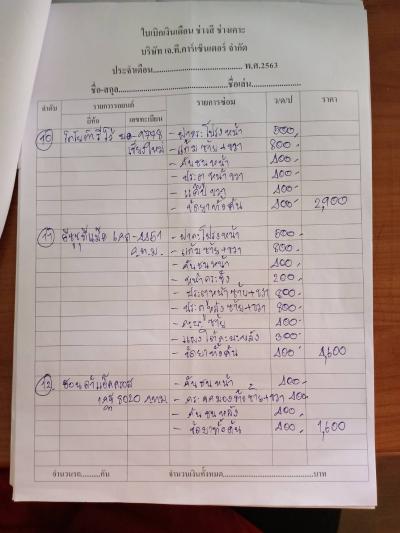 ใบเบิกเงินเดือน ช่างสี ช่างเคาะ
บริษัท เจ.ที.คาร์เซ็นเตอร์ จำกัด
ประจำเดือน............................................ พ.ศ.2563
ชื่อ-สกุล............................................ชื่อเล่น....................
ลำดับ รายการรถยนต์ รายการซ่อม ว/ด/ป ราคา
ยี่ห้อ เลขทะเบียน
10 9778 - ฝากระโปรงหน้า 500,
เชียงใหม่ - แก้มซ้าย+ขวา 800,
- กันชนหน้า 400,
- ประตูหน้าขวา 400,
- แค๊ปขวา 400,
- ขัดยาทั้งคัน 400 2,900
11 อีซูซุ 4451 - ฝากระโปรงหน้า 500,
ก.ท.ม. - แก้มซ้าย+ขวา 800,
- กันชนหน้า 400,
200,
- ประตูหน้าซ้าย+ขวา 800
- ประตูหลังซ้าย+ขวา 800
ซ้าย 400
300
- ขัดยาทั้งคัน 400 4,600
12 ฮอนด้าแอ็คคอร์ส - กันชนหน้า 400
8020 กทม ซ้าย+ขวา 400
- กันชนหลัง 400,
- ขัดยาทั้งคัน 400, 1,600
จำนวนรถ..........คัน จำนวนเงินทั้งหมด..............................บาท